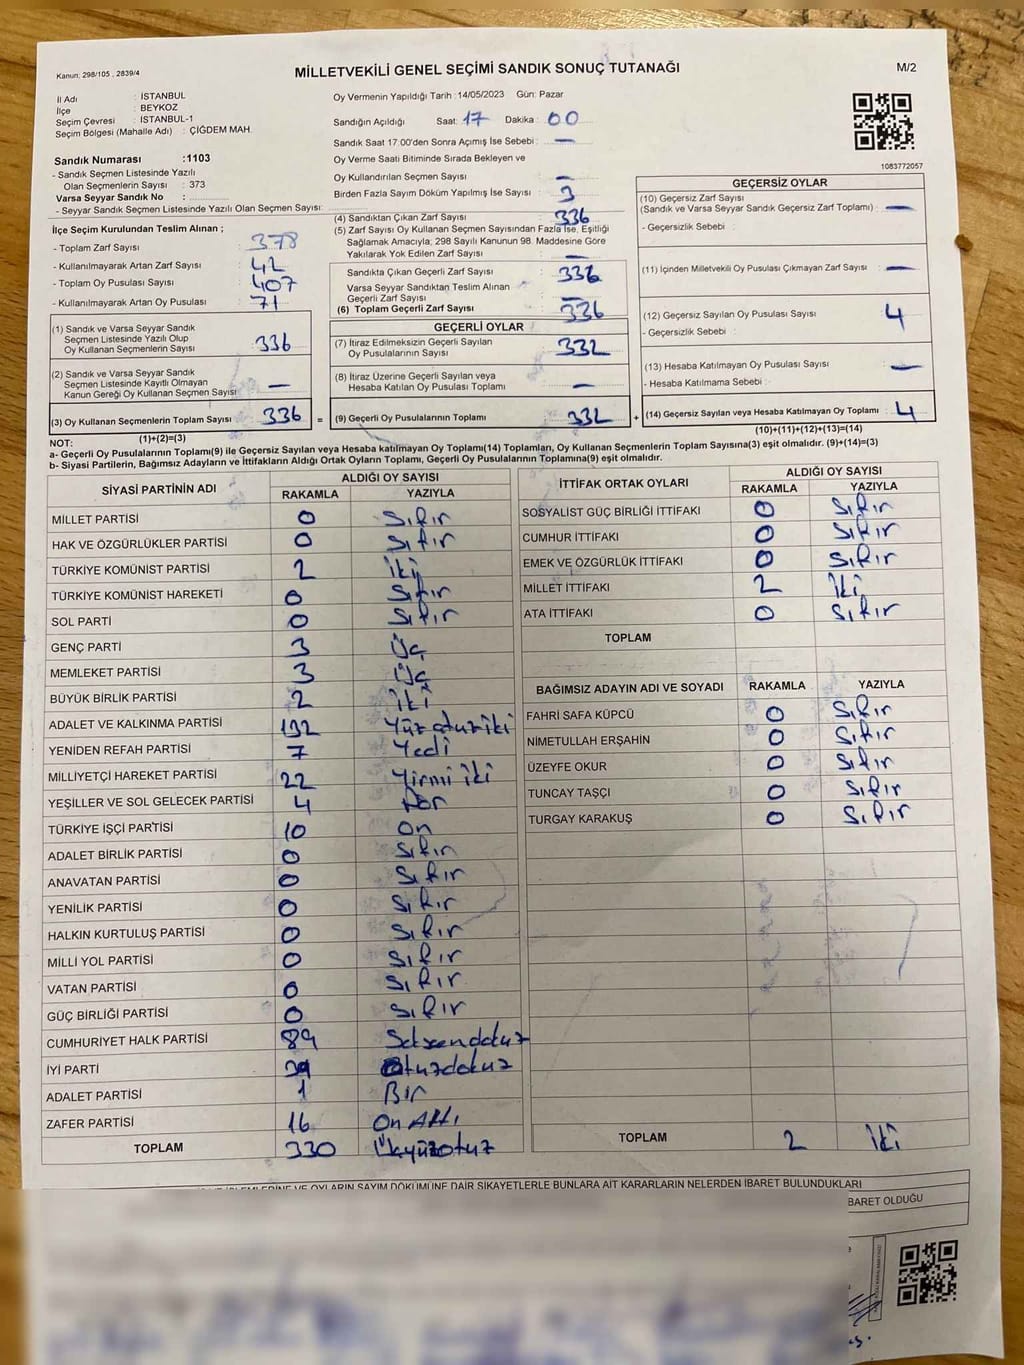 Kanun; 298/105 , 2839/4
MİLLETVEKİLİ GENEL SEÇİMİ SANDIK SONUÇ TUTANAĞI
M/2
İl Adı : İSTANBUL
İlçe : BEYKOZ
Seçim Çevresi : İSTANBUL-1
Seçim Bölgesi (Mahalle Adı) : ÇİĞDEM MAH.
Sandık Numarası :1103
- Sandık Seçmen Listesinde Yazılı
Olan Seçmenlerin Sayısı : 373
Varsa Seyyar Sandık No :
- Seyyar Sandık Seçmen Listesinde Yazılı Olan Seçmen Sayısı:
Oy Vermenin Yapıldığı Tarih :14/05/2023 Gün: Pazar
Sandığın Açıldığı Saat: 17 Dakika : 00
Sandık Saat 17.00'den Sonra Açımış İse Sebebi : —
Oy Verme Saati Bitiminde Sırada Bekleyen ve
Oy Kullandırılan Seçmen Sayısı : —
Birden Fazla Sayım Döküm Yapılmış İse Sayısı : 3
1083772057
İlçe Seçim Kurulundan Teslim Alınan ;
- Toplam Zarf Sayısı : 378
- Kullanılmayarak Artan Zarf Sayısı : 42
- Toplam Oy Pusulası Sayısı : 407
- Kullanılmayarak Artan Oy Pusulası : 71
(1) Sandık ve Varsa Seyyar Sandık
Seçmen Listesinde Yazılı Olup
Oy Kullanan Seçmenlerin Sayısı : 336
(2) Sandık ve Varsa Seyyar Sandık
Seçmen Listesinde Kayıtlı Olmayan
Kanun Gereği Oy Kullanan Seçmen Sayısı : —
(3) Oy Kullanan Seçmenlerin Toplam Sayısı : 336 =
(1)+(2)=(3)
(4) Sandıktan Çıkan Zarf Sayısı : 336
(5) Zarf Sayısı Oy Kullanan Seçmen Sayısından Fazla İse, Eşitliği
Sağlamak Amacıyla; 298 Sayılı Kanunun 98. Maddesine Göre
Yakılarak Yok Edilen Zarf Sayısı : —
Sandıkta Çıkan Geçerli Zarf Sayısı : 336
Varsa Seyyar Sandıktan Teslim Alınan
Geçerli Zarf Sayısı : —
(6) Toplam Geçerli Zarf Sayısı : 336
GEÇERLİ OYLAR
(7) İtiraz Edilmeksizin Geçerli Sayılan
Oy Pusulalarının Sayısı : 332
(8) İtiraz Üzerine Geçerli Sayılan veya
Hesaba Katılan Oy Pusulası Toplamı : —
(9) Geçerli Oy Pusulalarının Toplamı 332 +
GEÇERSİZ OYLAR
(10) Geçersiz Zarf Sayısı
(Sandık ve Varsa Seyyar Sandık Geçersiz Zarf Toplamı) : —
- Geçersizlik Sebebi :
(11) İçinden Milletvekili Oy Pusulası Çıkmayan Zarf Sayısı : —
(12) Geçersiz Sayılan Oy Pusulası Sayısı : 4
- Geçersizlik Sebebi :
(13) Hesaba Katılmayan Oy Pusulası Sayısı : —
- Hesaba Katılmama Sebebi :
(14) Geçersiz Sayılan veya Hesaba Katılmayan Oy Toplamı : 4
(10)+(11)+(12)+(13)=(14)
NOT:
a- Geçerli Oy Pusulalarının Toplamı(9) ile Geçersiz Sayılan veya Hesaba katılmayan Oy Toplamı(14) Toplamları, Oy Kullanan Seçmenlerin Toplam Sayısına(3) eşit olmalıdır. (9)+(14)=(3)
b- Siyasi Partilerin, Bağımsız Adayların ve İttifakların Aldığı Ortak Oyların Toplamı, Geçerli Oy Pusulalarının Toplamına(9) eşit olmalıdır.
SİYASİ PARTİNİN ADI ALDIĞI OY SAYISI
RAKAMLA YAZIYLA
MİLLET PARTİSİ 0 Sıfır
HAK VE ÖZGÜRLÜKLER PARTİSİ 0 Sıfır
TÜRKİYE KOMÜNİST PARTİSİ 2 iki
TÜRKİYE KOMÜNİST HAREKETİ 0 Sıfır
SOL PARTİ 0 Sıfır
GENÇ PARTİ 3 Üç
MEMLEKET PARTİSİ 3 Üç
BÜYÜK BİRLİK PARTİSİ 2 iki
ADALET VE KALKINMA PARTİSİ 132 Yüzotuziki
YENİDEN REFAH PARTİSİ 7 Yedi
MİLLİYETÇİ HAREKET PARTİSİ 22 Yirmi iki
YEŞİLLER VE SOL GELECEK PARTİSİ 4
TÜRKİYE İŞÇİ PARTİSİ 10 On
ADALET BİRLİK PARTİSİ 0 Sıfır
ANAVATAN PARTİSİ 0 Sıfır
YENİLİK PARTİSİ 0 Sıfır
HALKIN KURTULUŞ PARTİSİ 0 Sıfır
MİLLİ YOL PARTİSİ 0 Sıfır
VATAN PARTİSİ 0 Sıfır
GÜÇ BİRLİĞİ PARTİSİ 0 Sıfır
CUMHURİYET HALK PARTİSİ 89 Seksendokuz
İYİ PARTİ 39 Otuzdokuz
ADALET PARTİSİ 1 Bir
ZAFER PARTİSİ 16 On Altı
TOPLAM 330 Üçyüzotuz
İTTİFAK ORTAK OYLARI ALDIĞI OY SAYISI
RAKAMLA YAZIYLA
SOSYALİST GÜÇ BİRLİĞİ İTTİFAKI 0 Sıfır
CUMHUR İTTİFAKI 0 Sıfır
EMEK VE ÖZGÜRLÜK İTTİFAKI 0 Sıfır
MİLLET İTTİFAKI 2 İki
ATA İTTİFAKI 0 Sıfır
TOPLAM
BAĞIMSIZ ADAYIN ADI VE SOYADI RAKAMLA YAZIYLA
FAHRİ SAFA KÜPCÜ 0 Sıfır
NİMETULLAH ERŞAHİN 0 Sıfır
ÜZEYFE OKUR 0 Sıfır
TUNCAY TAŞÇI 0 Sıfır
TURGAY KARAKUŞ 0 Sıfır
TOPLAM 2 İki
İŞLEMLERİNE VE OYLARIN SAYIM DÖKÜMÜNE DAİR ŞİKAYETLERLE BUNLARA AİT KARARLARIN NELERDEN İBARET BULUNDUKLARI
BARET OLDUĞU